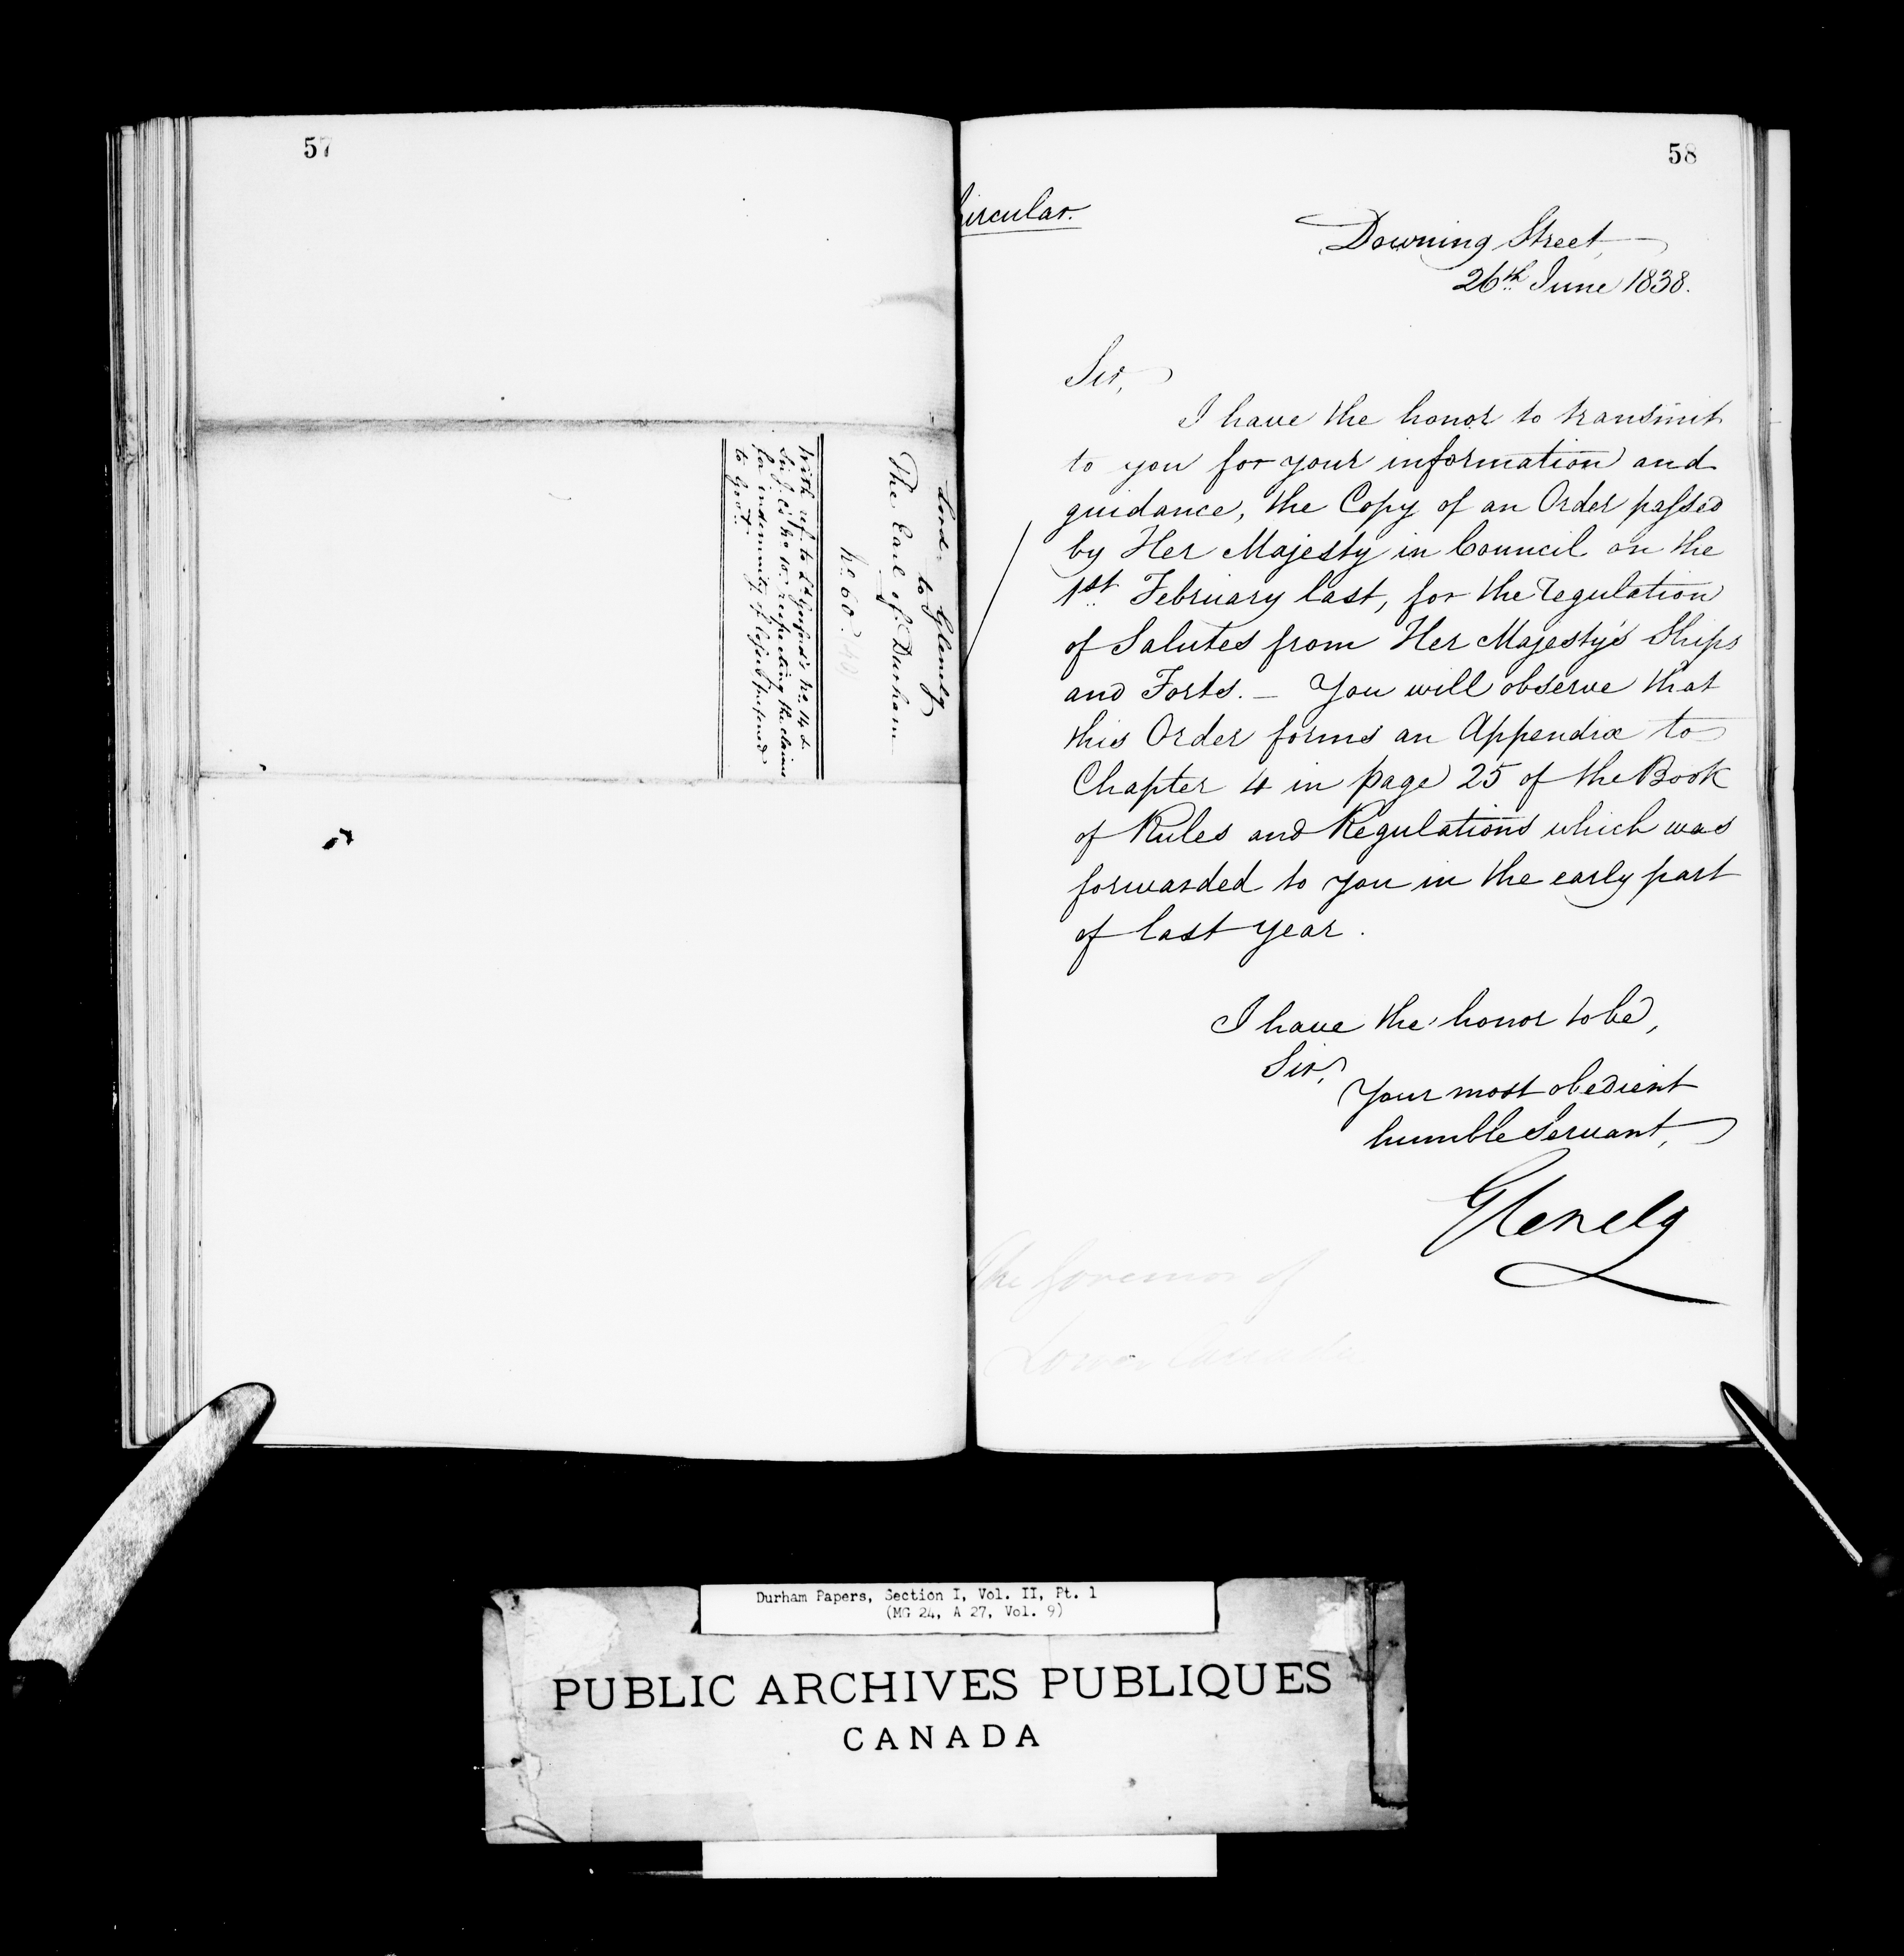 57
Lord Glenelg
to
The Earl of Durham
No. 60.
With ref. to Ld Gosford's No. 14 &
Sir J. C's No. 10. respecting the claims
for indemnity of losses
to Govt.
58
Circular.
Downing Street,
26th June 1838.
Sir,
I have the honor to transmit
to you for your information and
guidance, the Copy of an Order passed
by Her Majesty in Council on the
1st February last, for the regulation
of Salutes from Her Majesty's Ships
and Forts. _ You will observe that
this Order forms an Appendix to
Chapter 4 in page 25 of the Book
of Rules and Regulations which was
forwarded to you in the early part
of last year.
I have the honor to be,
Sir,
Your most obedient
humble Servant,
Glenelg
The Governor of
Lower Canada
Durham Papers, Section I, Vol. II, Pt. 1
(MG 24, A 27, Vol. 9)
PUBLIC ARCHIVES PUBLIQUES
CANADA